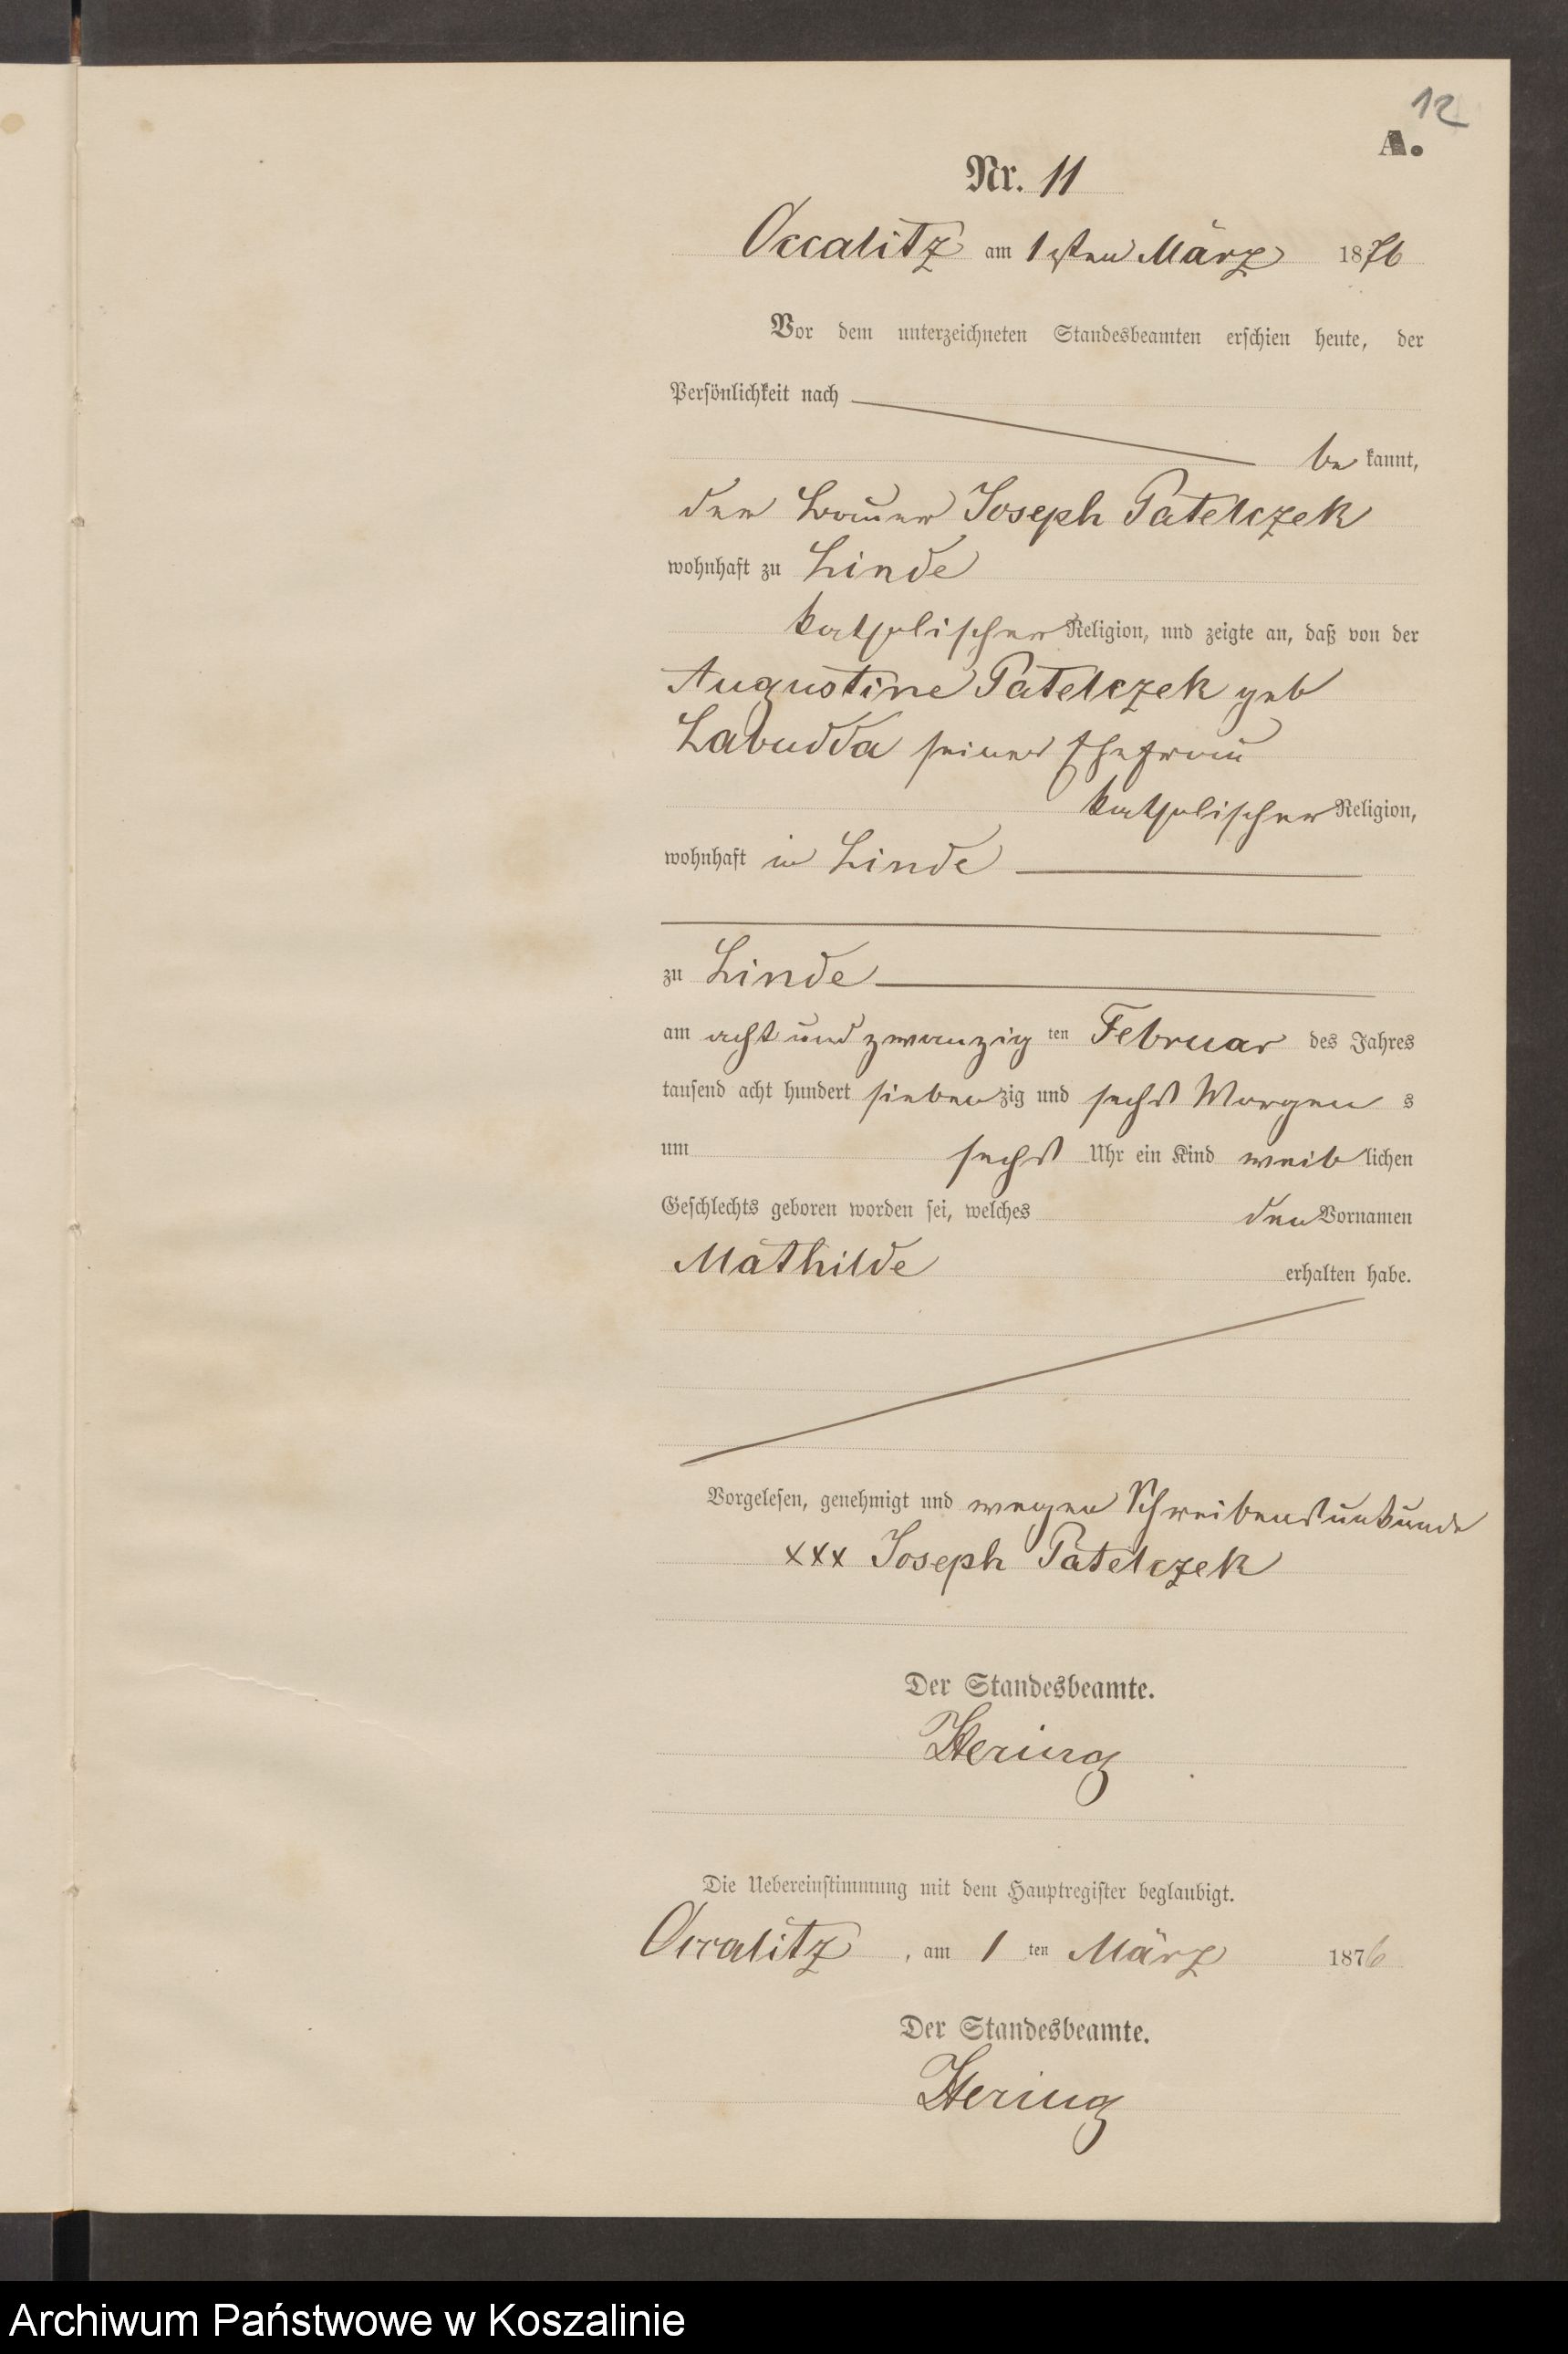 12
A.
Nr. 11
Occalitz am 1sten März 1876
Vor dem unterzeichneten Standesbeamten erschien heute, der
Persönlichkeit nach
be kannt,
der Bauer Joseph Patelczek
wohnhaft zu Linde
katholischer Religion, und zeigte an, daß von der
Augustine Patelczek geb
Labudda seiner Ehefrau
katholischer Religion,
wohnhaft in Linde
zu Linde
am acht und zwanzig ten Februar des Jahres
tausend acht hundert siebenzig und sechs Morgen s
um sechs Uhr ein Kind weib lichen
Geschlechts geboren worden sei, welches den Vornamen
Mathilde erhalten habe.
Vorgelesen, genehmigt und wegen Schreibensunkunde
xxx Joseph Patelczek
Der Standesbeamte.
Hering
Die Uebereinstimmung mit dem Hauptregister beglaubigt.
Occalitz, am 1 ten März 1876
Der Standesbeamte.
Hering
Archiwum Państwowe w Koszalinie